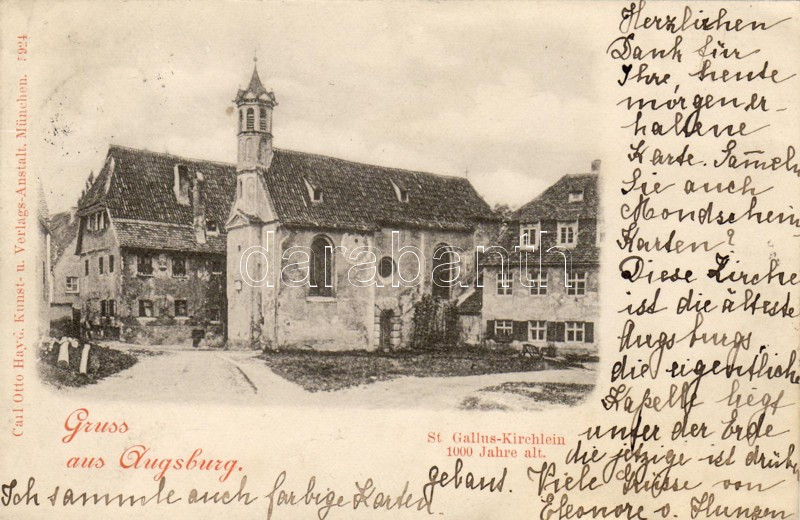 Herzlichen
Dank für
Ihre, heute
morgen er-
haltene
Karte. Sammeln
Sie auch
Mondschein
Karten?
Diese Kirche
ist die älteste
Augsburgs,
die eigentliche
Kapelle liegt
unter der Erde
die jetzige ist drüber
gebaut. Viele Grüsse von
Eleonore v.
Ich sammle auch farbige Karten.
Carl Otto Hayd, Kunst- u. Verlags-Anstalt, München. 7924
darabanth.com
Gruss
aus Augsburg.
St Gallus-Kirchlein
1000 Jahre alt.